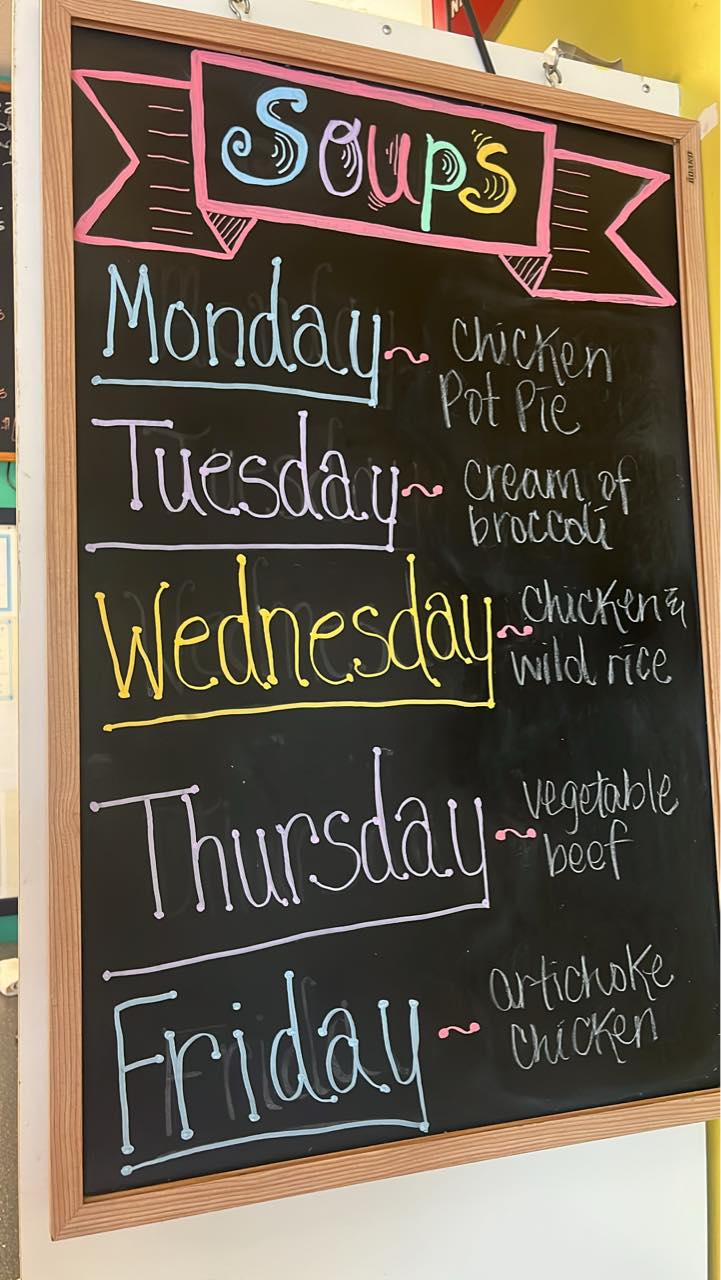 Soups
Monday ~ chicken
Pot Pie
Tuesday ~ cream of
broccoli
Wednesday ~ chicken &
wild rice
Thursday ~ vegetable
beef
Friday ~ artichoke
chicken
BOARD